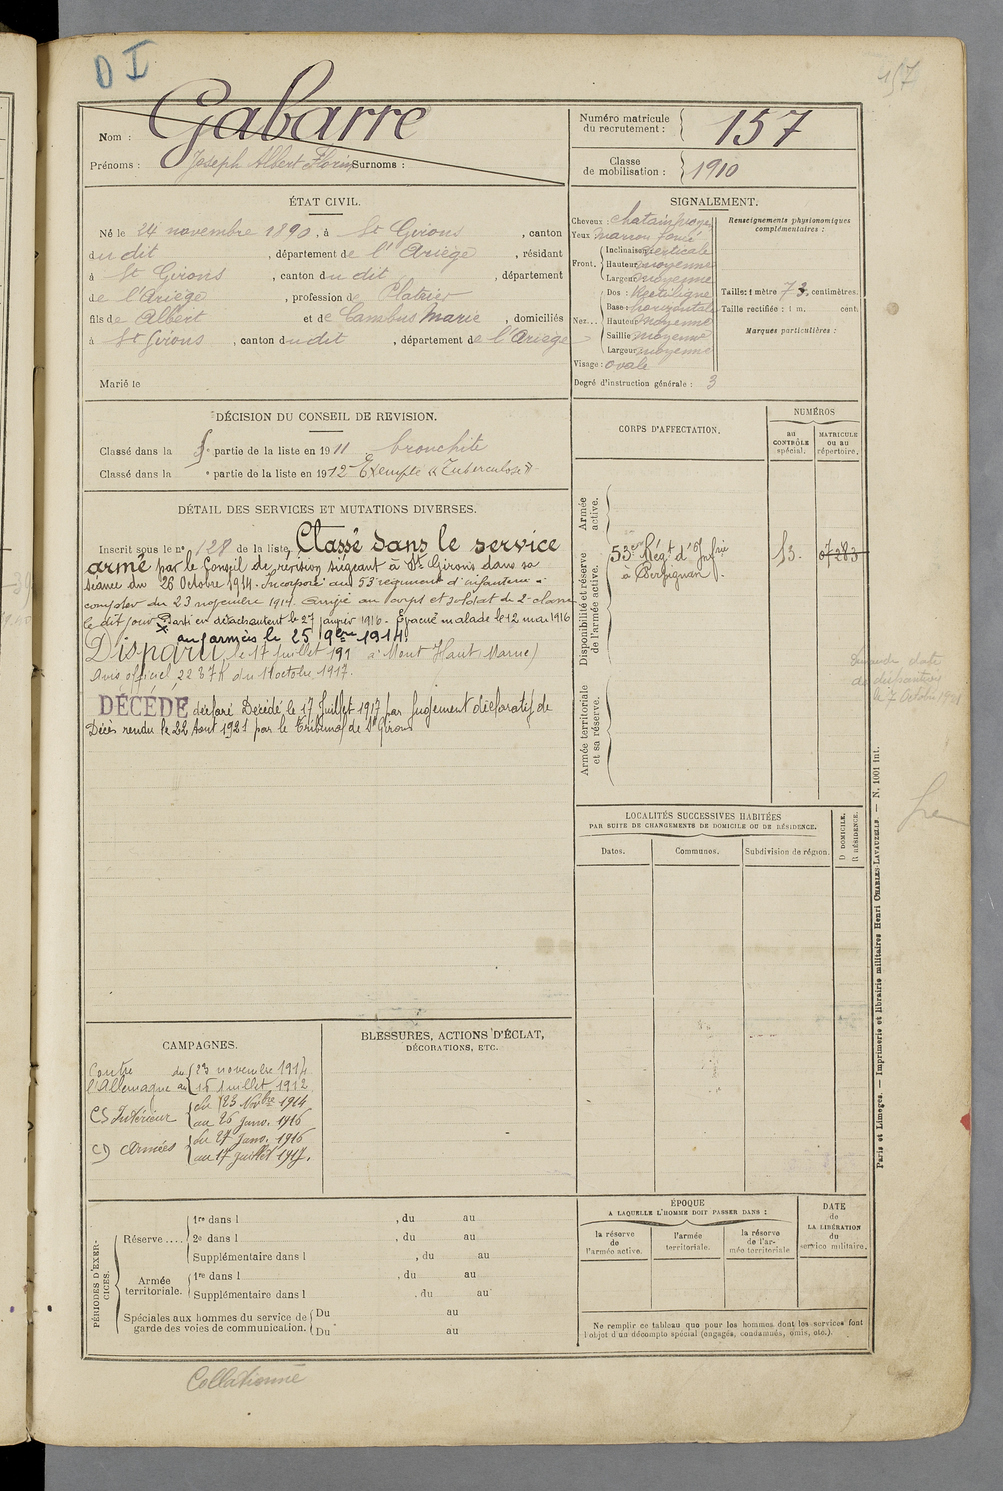 D I
157
Nom : Gabarre
Prénoms : Joseph Albert Florin Surnoms :
Numéro matricule du recrutement : 157
Classe de mobilisation : 1910
ÉTAT CIVIL.
Né le 24 novembre 1890, à St Girons, canton
dudit, département de l'Ariège, résidant
à St Girons, canton dudit, département
de l'Ariège, profession de Platrier
fils de Albert et de Cambus Marie, domiciliés
à St Girons, canton dudit, département de l'Ariège
Marié le
SIGNALEMENT.
Cheveux : chatain
Yeux marron foncé
Front. Inclinaison verticale
Hauteur moyenne
Largeur moyenne
Nez... Dos : Rectiligne
Base : horizontale
Hauteur moyenne
Saillie moyenne
Largeur moyenne
Visage : ovale
Degré d'instruction générale : 3
Renseignements physionomiques complémentaires :
Taille : 1 mètre 73 centimètres.
Taille rectifiée : 1 m. cent.
Marques particulières :
DÉCISION DU CONSEIL DE REVISION.
Classé dans la 5e partie de la liste en 1911 bronchite
Classé dans la e partie de la liste en 1912 Exempté "Tuberculose"
DÉTAIL DES SERVICES ET MUTATIONS DIVERSES.
Inscrit sous le no 128 de la liste, Classé dans le service
armé par le Conseil de révision siégeant à St Girons dans sa
séance du 26 Octobre 1914. Incorporé au 53e régiment d'infanterie à
compter du 23 novembre 1914. Arrivé au corps et soldat de 2e classe
le dit jour. Parti en détachement le 27 janvier 1916. Evacué malade le 12 mai 1916
aux armées le 25 9bre 1914
Disparu le 17 juillet 191 à Mont Haut (Marne)
Avis officiel 2237 du 11 octobre 1917.
DÉCÉDÉ déclaré Décédé le 17 Juillet 1917 par Jugement déclaratif de
Décès rendu le 22 Aout 1921 par le Tribunal de St Girons
CORPS D'AFFECTATION.
NUMÉROS
au CONTRÔLE spécial.
MATRICULE ou au répertoire.
Armée active.
Disponibilité et réserve de l'armée active.
53e Régt d'Infrie
à Perpignan
13.
07283
Armée territoriale et sa réserve.
LOCALITÉS SUCCESSIVES HABITÉES
PAR SUITE DE CHANGEMENTS DE DOMICILE OU DE RÉSIDENCE.
Dates.
Communes.
Subdivision de région.
D DOMICILE. R RÉSIDENCE.
CAMPAGNES.
Contre du 23 novembre 1914
l'Allemagne au
CS Intérieur du 23 Novbre 1914
au 26 janv. 1916
CD Armées du 27 janv. 1916
au 17 juillet 1917.
BLESSURES, ACTIONS D'ÉCLAT,
DÉCORATIONS, ETC.
PÉRIODES D'EXERCICES.
Réserve .... 1re dans l , du au
2e dans l , du au
Supplémentaire dans l , du au
Armée territoriale. 1re dans l , du au
Supplémentaire dans l , du au
Spéciales aux hommes du service de garde des voies de communication. Du au
Du au
ÉPOQUE
A LAQUELLE L'HOMME DOIT PASSER DANS :
la réserve de l'armée active.
l'armée territoriale.
la réserve de l'armée territoriale
DATE de LA LIBÉRATION du service militaire.
Ne remplir ce tableau que pour les hommes dont les services font
l'objet d'un décompte spécial (engagés, condamnés, omis, etc.).
Paris et Limoges. — Imprimerie et librairie militaires Henri CHARLES-LAVAUZELLE. — N. 1001 int.
Collationné